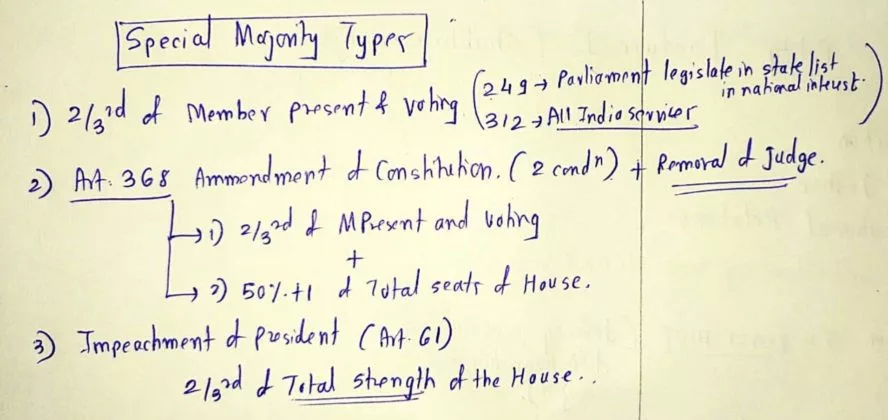 Special Majority Types
1) 2/3rd of Member present & voting (249 → Parliament legislate in state list
in national interest.
312 → All India Services)
2) Art. 368 Ammendment of Constitution. (2 condn) + Removal of Judge.
→ 1) 2/3rd of M Present and voting
+
→ 2) 50%+1 of Total seats of House.
3) Impeachment of president (Art. 61)
2/3rd of Total strength of the House..